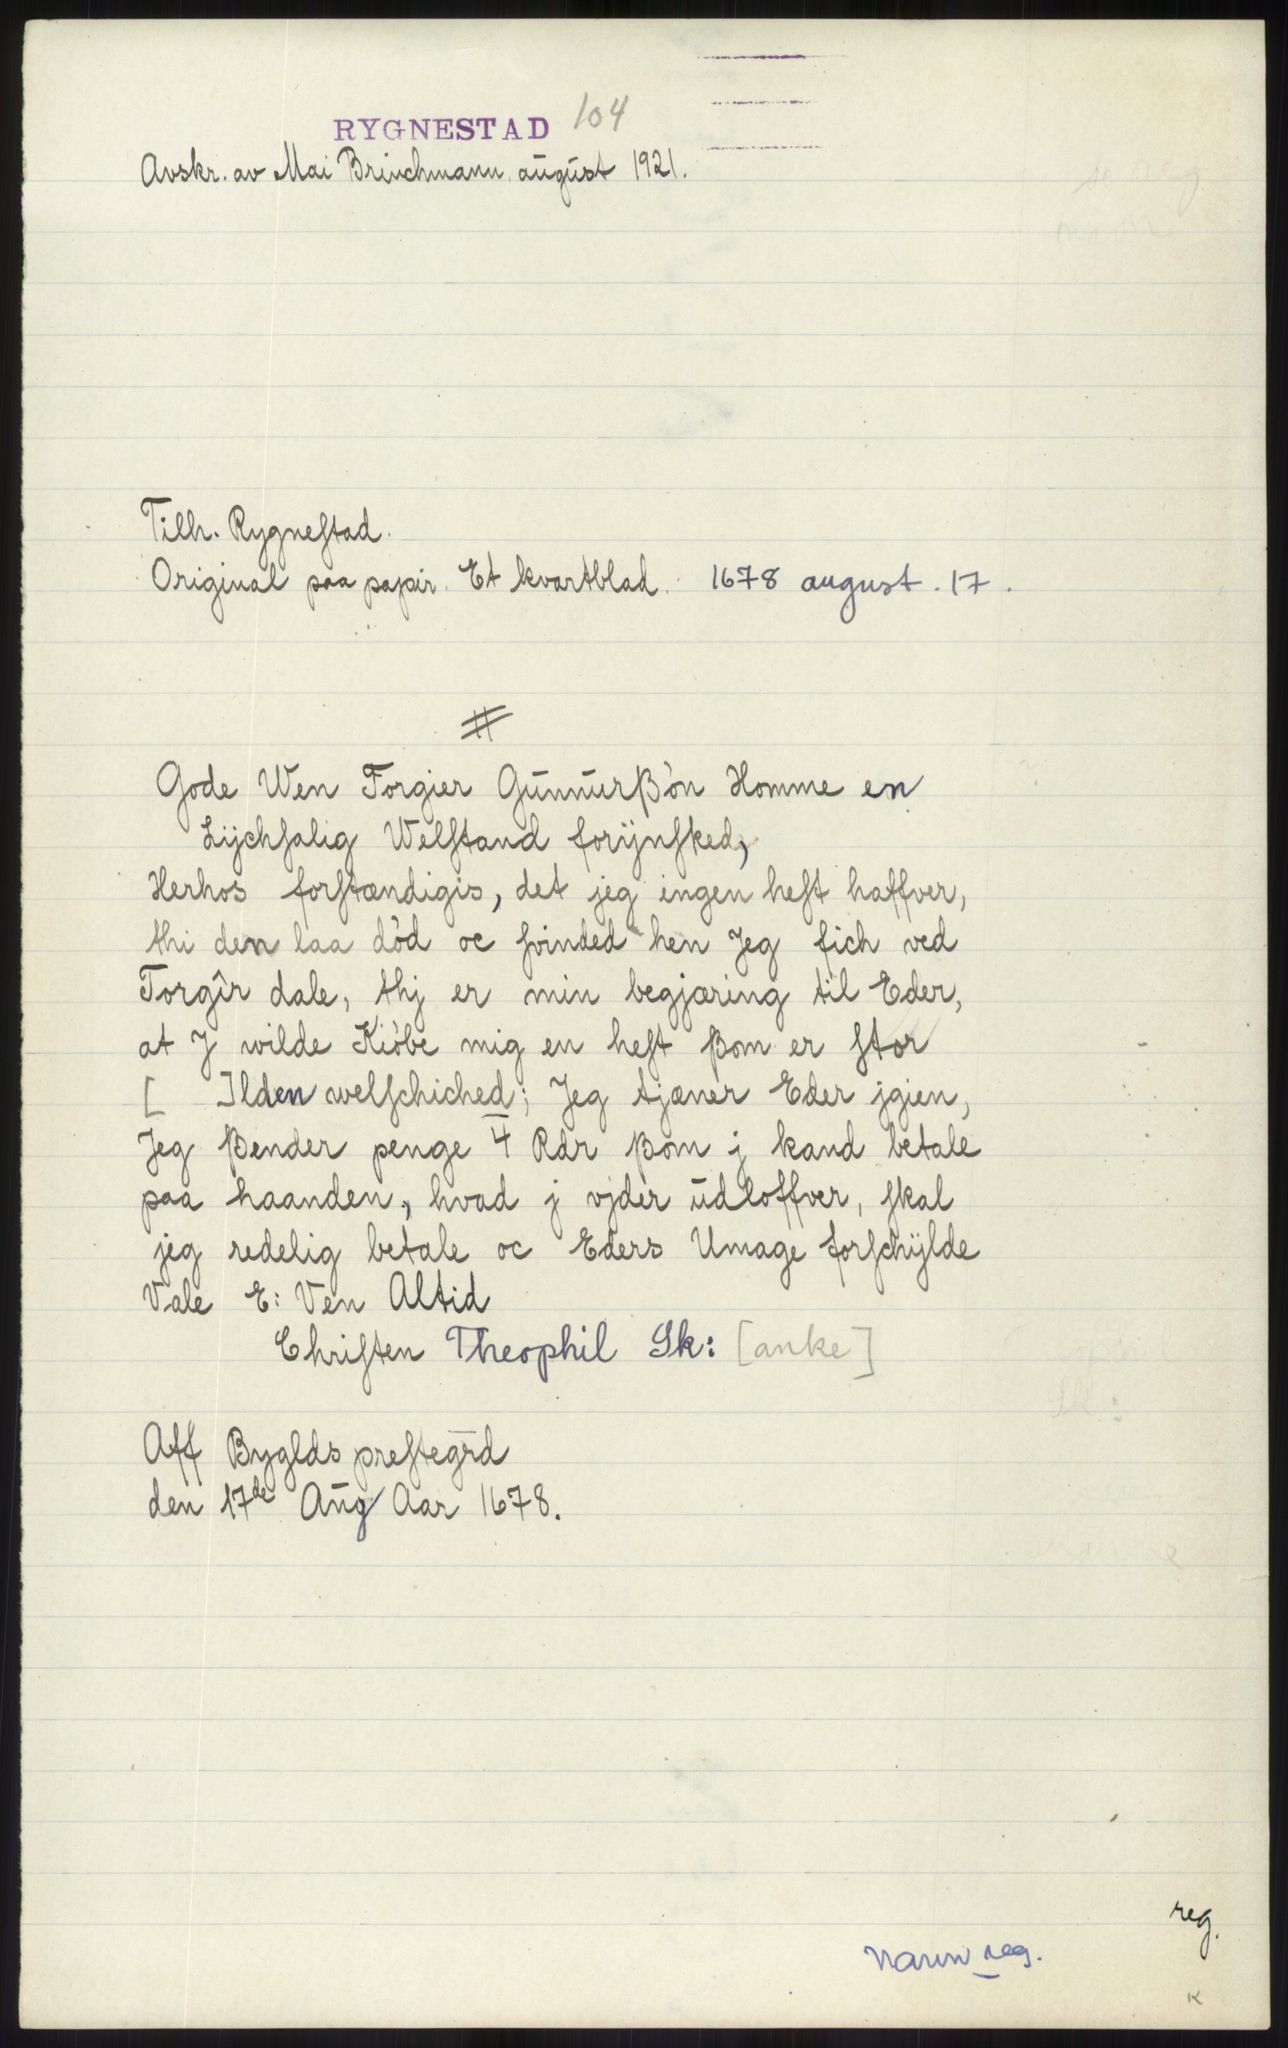 RYGNESTAD 104
Avskr. av Mai Brinchmann august 1921.
Tilh. Rygnestad.
Original paa papir. Et kvartblad. 1678 august. 17.
Gode Wen Torgier Gunnurßøn Homme en
Lijchsalig Welstand forÿnsked,
Herhos forstændigis, det jeg ingen hest haffver,
thi den laa død oc svinded hen Jeg fich ved
Torgir dale, thj er min begjæring til Eder,
at J wilde Kiøbe mig en hest ßom er stor
[ ]lden welschiched; Jeg tjæner Eder jgien,
Jeg ßender penge 4 Rdr ßom j kand betale
paa haanden, hvad j vjder udloffver, skal
jeg redelig betale oc Eders Umage forschÿlde
Vale E: Ven Altid
Christen Theophil Sk: [anke]
Aff Byglds prestegrd
den 17de Aug Aar 1678.
reg.
navn reg.
K